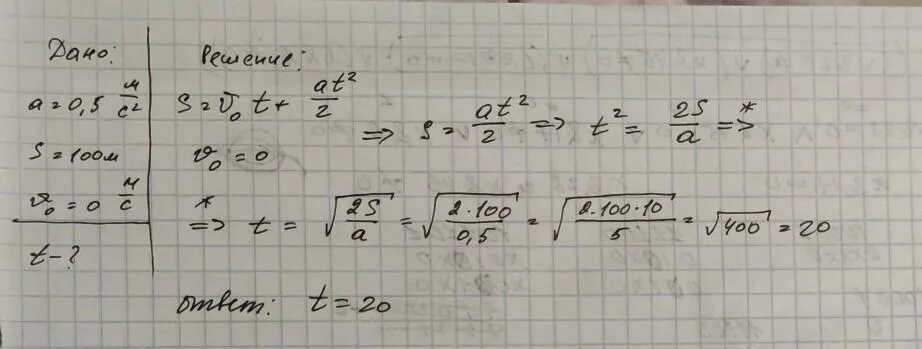 Дано:
a = 0,5 м/с²
S = 100м
v₀ = 0 м/с
t - ?
Решение:
S = v₀ t + at²/2
v₀ = 0
=> S = at²/2 => t² = 2S/a =>*
*=> t = √(2S/a) = √(2·100/0,5) = √(2·100·10/5) = √400 = 20
ответ: t = 20